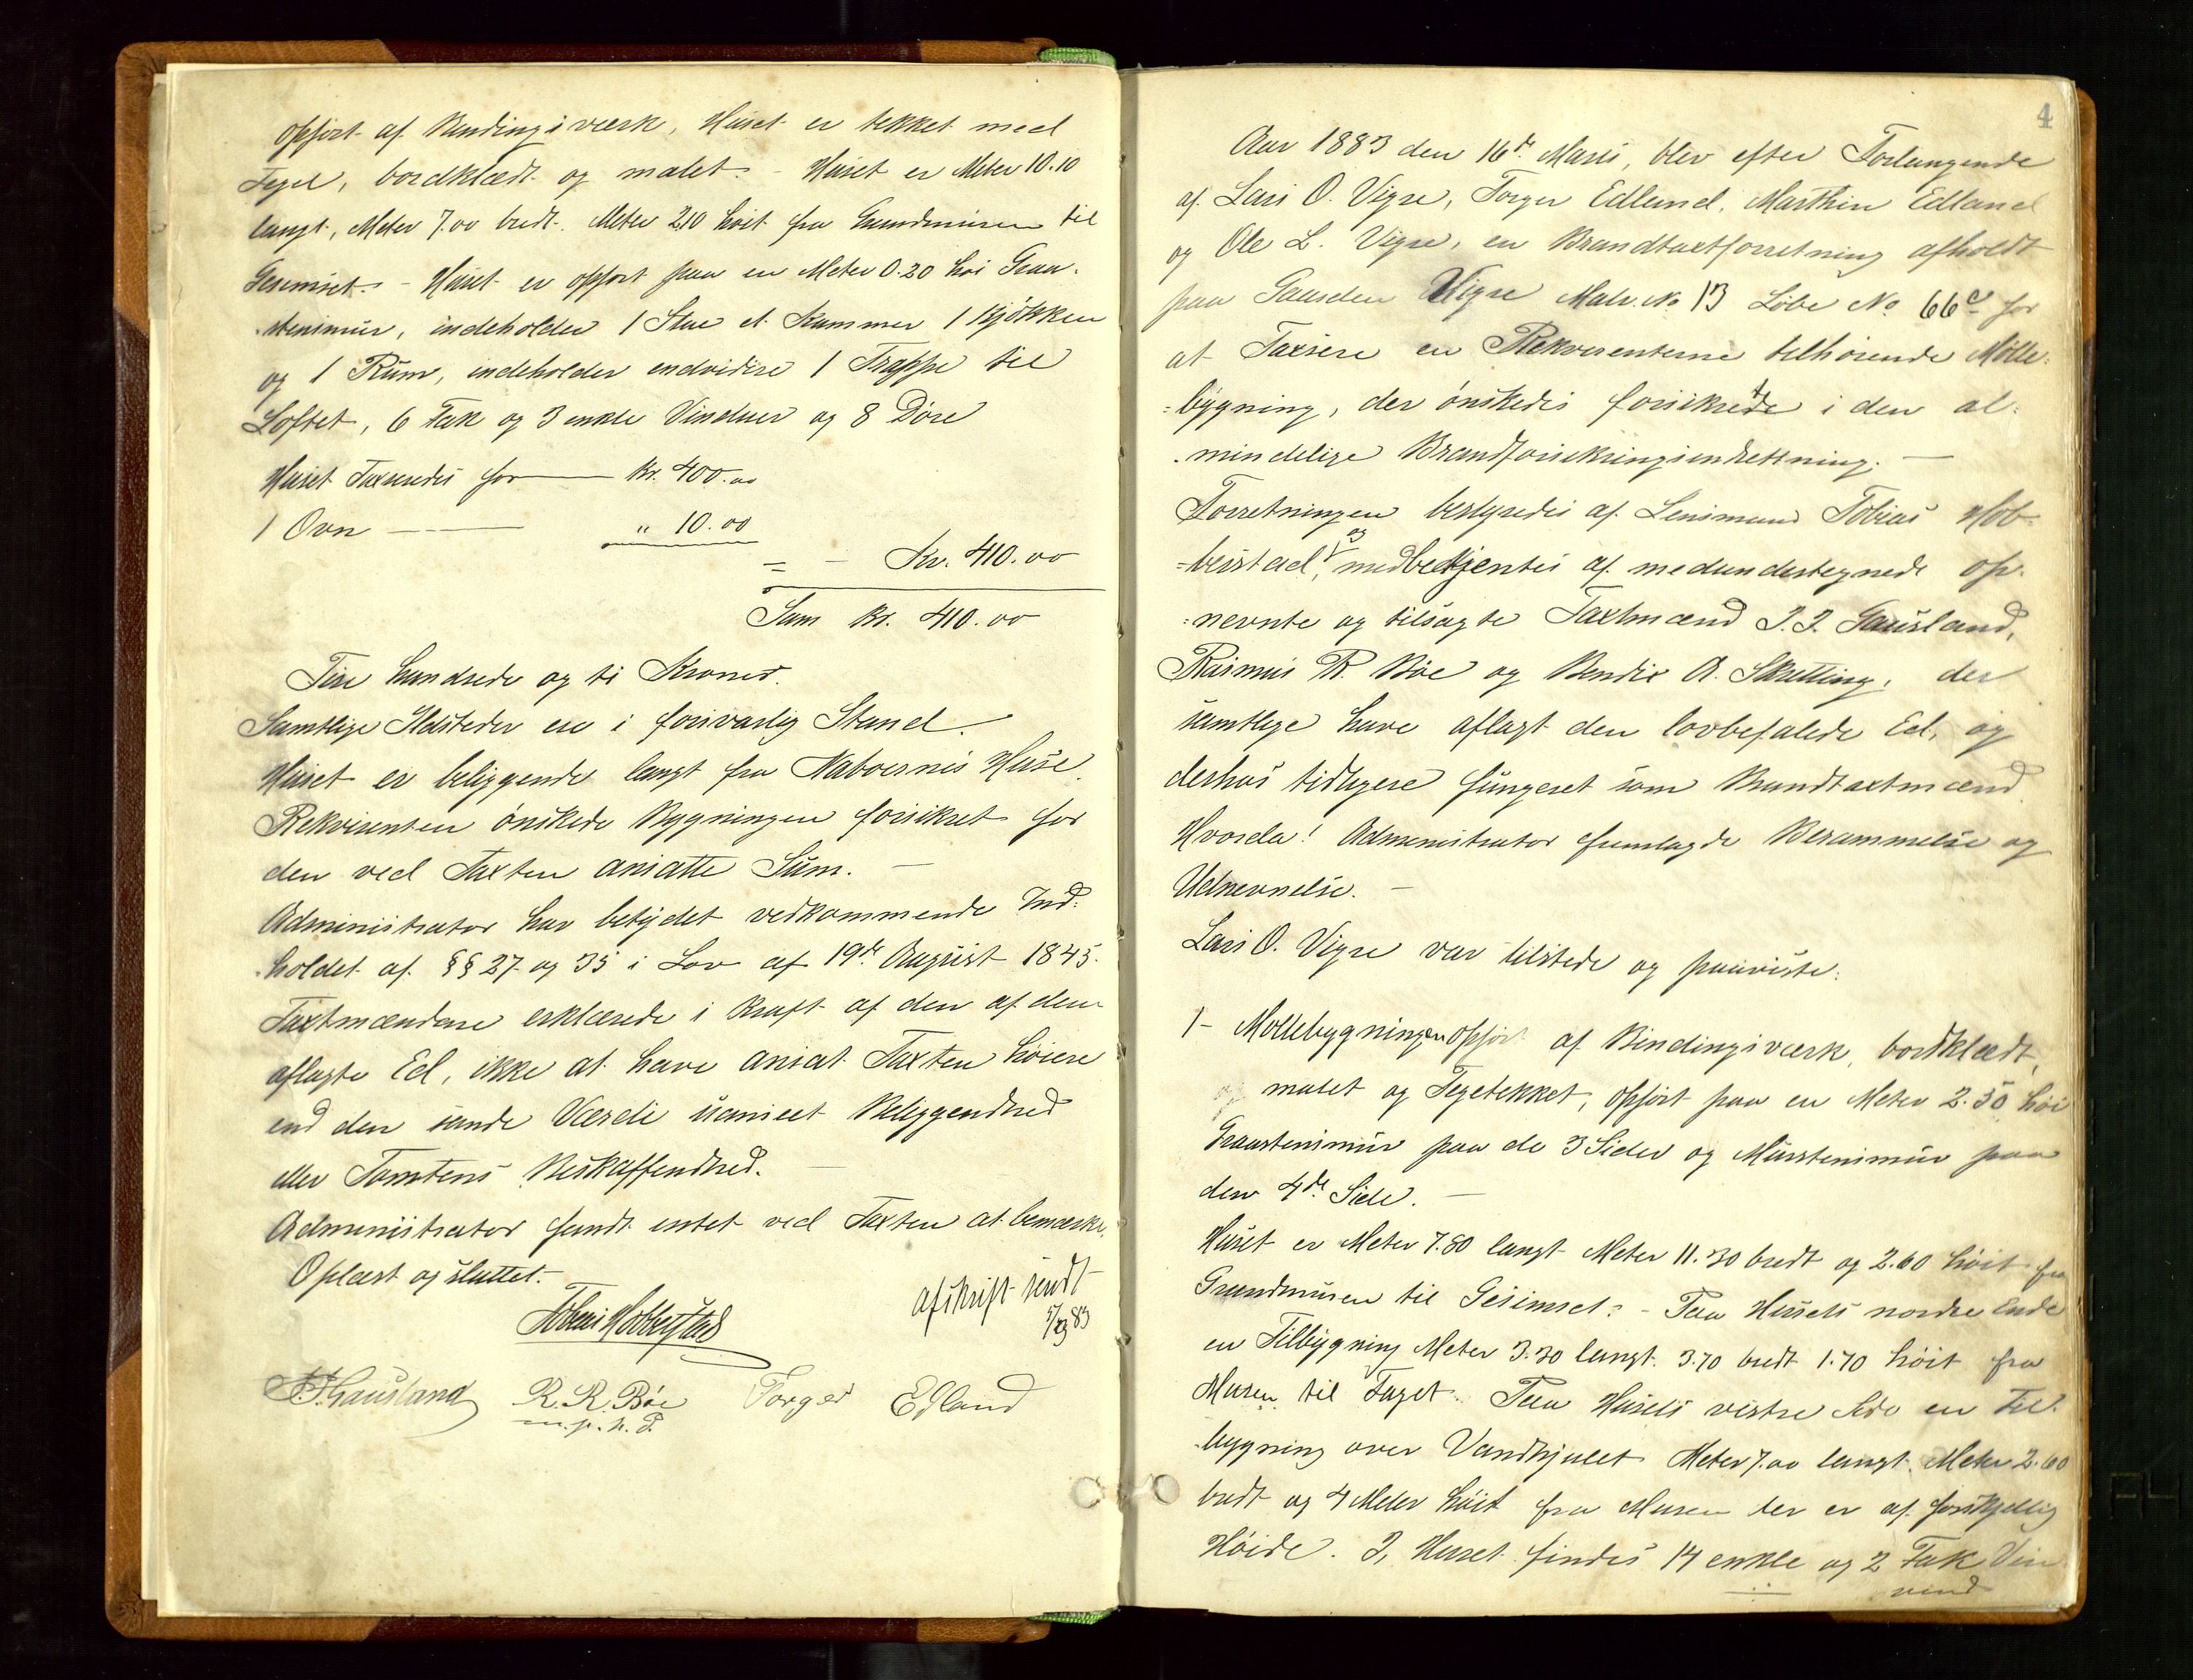 opført af Bindingsværk, Huset er tekket med
Tegel, bordklædt og malet. - Huset er Meter 10.10
langt, Meter 7.00 bredt. Meter 2.10 høit fra Grundmuren til
Gesimset. - Huset er opført paa en Meter 0.20 høi Graa-
stensmur, indeholder 1 Stue et Kammer 1 Kjøkken
og 1 Rum, indeholder endvidere 1 Trappe til
Loftet, 6 Fak og 3 enkle Vinduer og 8 Døre
Huset Taxseredes for — Kr. 400.00
1 Ovn — — " 10.00
= - Kr. 410.00
Sum Kr. 410.00
Fire hundrede og ti Kroner.
Samtlige Ildsteder ere i forsvarlig Stand.
Huset er beliggende langt fra Naboernes Huse.
Rekvirenten ønskede Bygningen forsikret for
den ved Taxten ansatte Sum. —
Administrator har betydet vedkommende Ind-
holdet af §§ 27 og 35 i Lov af 19de August 1845.
Taxtmændene erklærede i Kraft af den af dem
aflagte Ed, ikke at have ansat Taxten høiere
end den sande Værdi uanseet Beliggenhed
eller Tomtens Beskaffenhed. —
Administrator fandt intet ved Taxten at bemærke.
Oplæst og sluttet. -
Tobias Hobberstad
afskrift sendt
5/3 83
J. J. Gausland R. R. Bøe Torger Edland
m. p. h. P.
4
Aar 1883 den 16de Marts, blev efter Forlangende
af Lars O. Vigre, Torger Edland, Marthin Edland
og Ole L. Vigre, en Brandtaxtforretning afholdt
paa Gaarden Vigre Matr. No 13 Løbe No 66c for
at Taxsere en Rekvirenterne tilhørende Mølle-
=bygning, der ønskedes forsikrede i den al-
mindelige Brandforsikringsindretning. —
Forretningen bestyredes af Lensmand Tobias Hob-
=berstad, og medbetjentes af medundertegnede op-
=nevnte og tilsagte Taxtmænd J. J. Gausland,
Rasmus R. Bøe og Bendix A. Skretting, der
samtlige have aflagt den lovbefalede Ed, og
derhos tidligere fungeret som Brandtaxtmænd
Hvorda! Administrator fremlagde Berammelse og
Udnevnelse. —
Lars O. Vigre var tilstede og paaviste:
1- Møllebygningen opført af Bindingsværk, bordklædt,
malet og Tegetekket, opført paa en Meter 2.50 høi
Graastensmur paa de 3 Sider og Murstensmur paa
den 4de Side. —
Huset er Meter 7.80 langt Meter 11.30 bredt og 2.60 høit fra
Grundmuren til Gesimset. - Paa Husets nordre Ende
en Tilbygning Meter 3.30 langt. 3.70 bredt 1.70 høit fra
Muren til Taget. Paa Husets vestre Side en Til-
bygning over Vandhjulet Meter 7.00 langt, Meter 2.60
bredt og 4 Meter høit fra Muren der er af forskjellig
Høide. I, Huset findes 14 enkle og 2 Fak Vin
vind